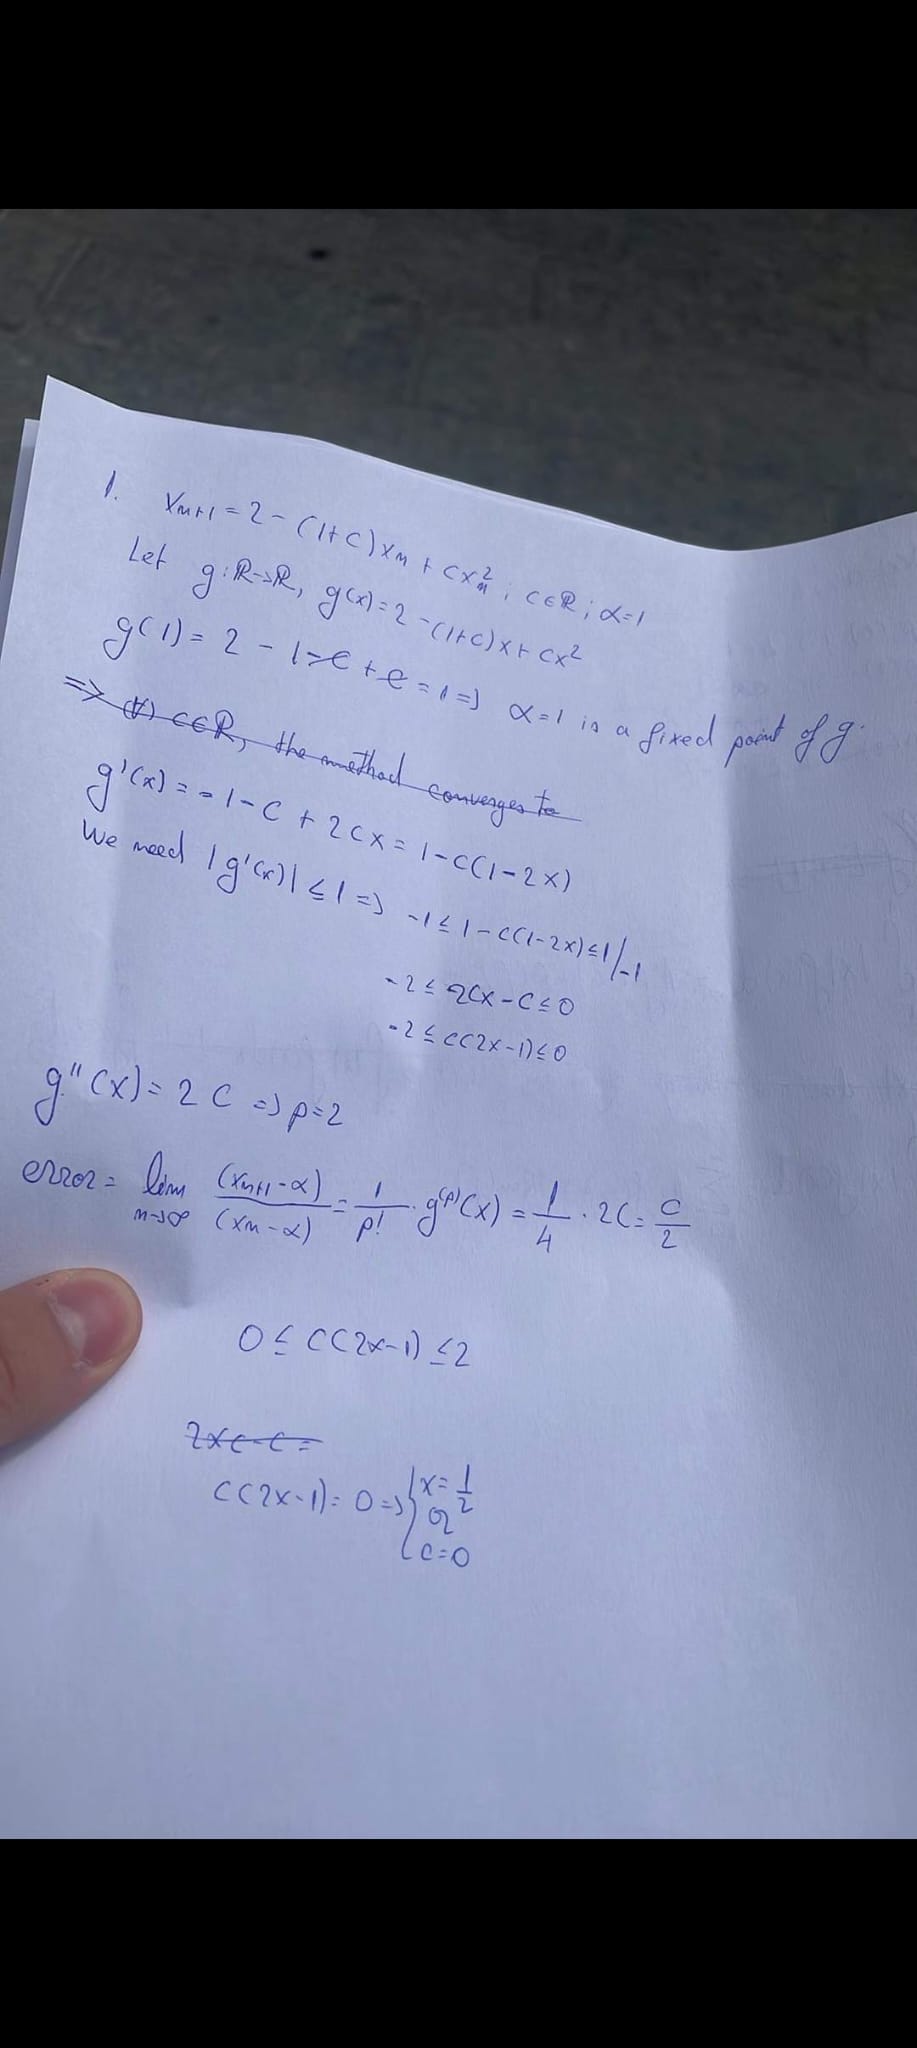 1. x_{n+1} = 2 - (1+c)x_n + cx_n^2 ; c∈ℝ ; α=1
Let g:ℝ→ℝ, g(x) = 2 - (1+c)x + cx^2
g(1) = 2 - 1 - c + c = 1 => α=1 is a fixed point of g.
=> (∀) c∈ℝ, the method converges to
g'(x) = -1 - c + 2cx = 1 - c(1-2x)
We need |g'(x)| ≤ 1 => -1 ≤ 1 - c(1-2x) ≤ 1 /-1
-2 ≤ 2cx - c ≤ 0
-2 ≤ c(2x-1) ≤ 0
g''(x) = 2c => p=2
error = lim_{n→∞} (x_{n+1} - α)/(x_n - α) = 1/p! · g^{(p)}(x) = 1/4 · 2c = c/2
0 ≤ c(2x-1) ≤ 2
2xc-c =
c(2x-1) = 0 => { x = 1/2
or
c=0